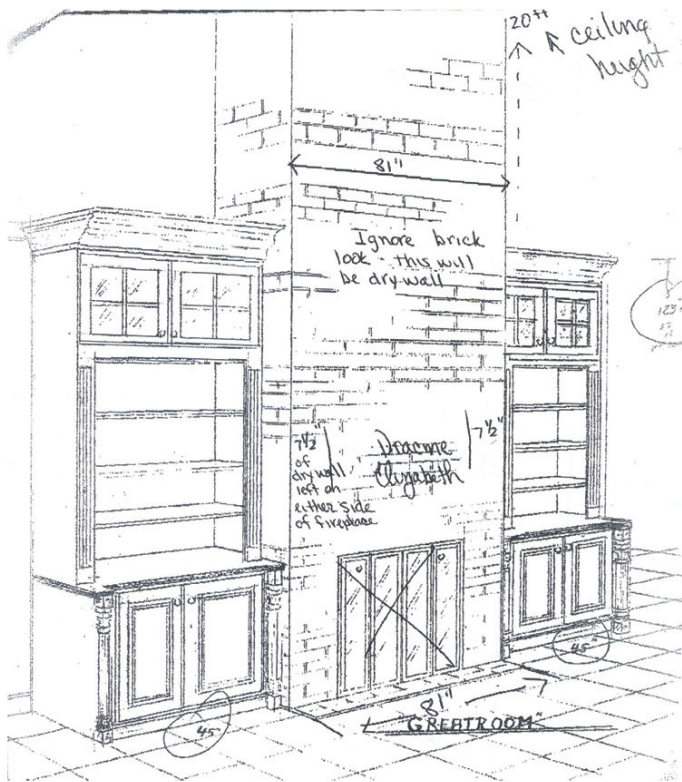 20ft
ceiling
height
81"
Ignore brick
look - this will
be drywall
123"
7½"
of
drywall
left on
either side
of fireplace
Dracme
Elizabeth
7½"
45"
45"
81"
"GREATROOM"